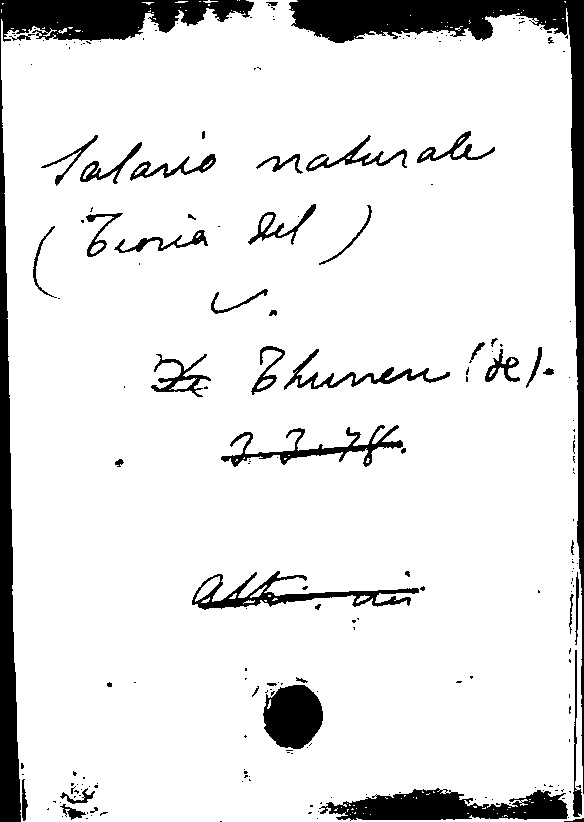 Salario naturale
(Teoria del)
v.
De Thunen (de).
3.3.78.